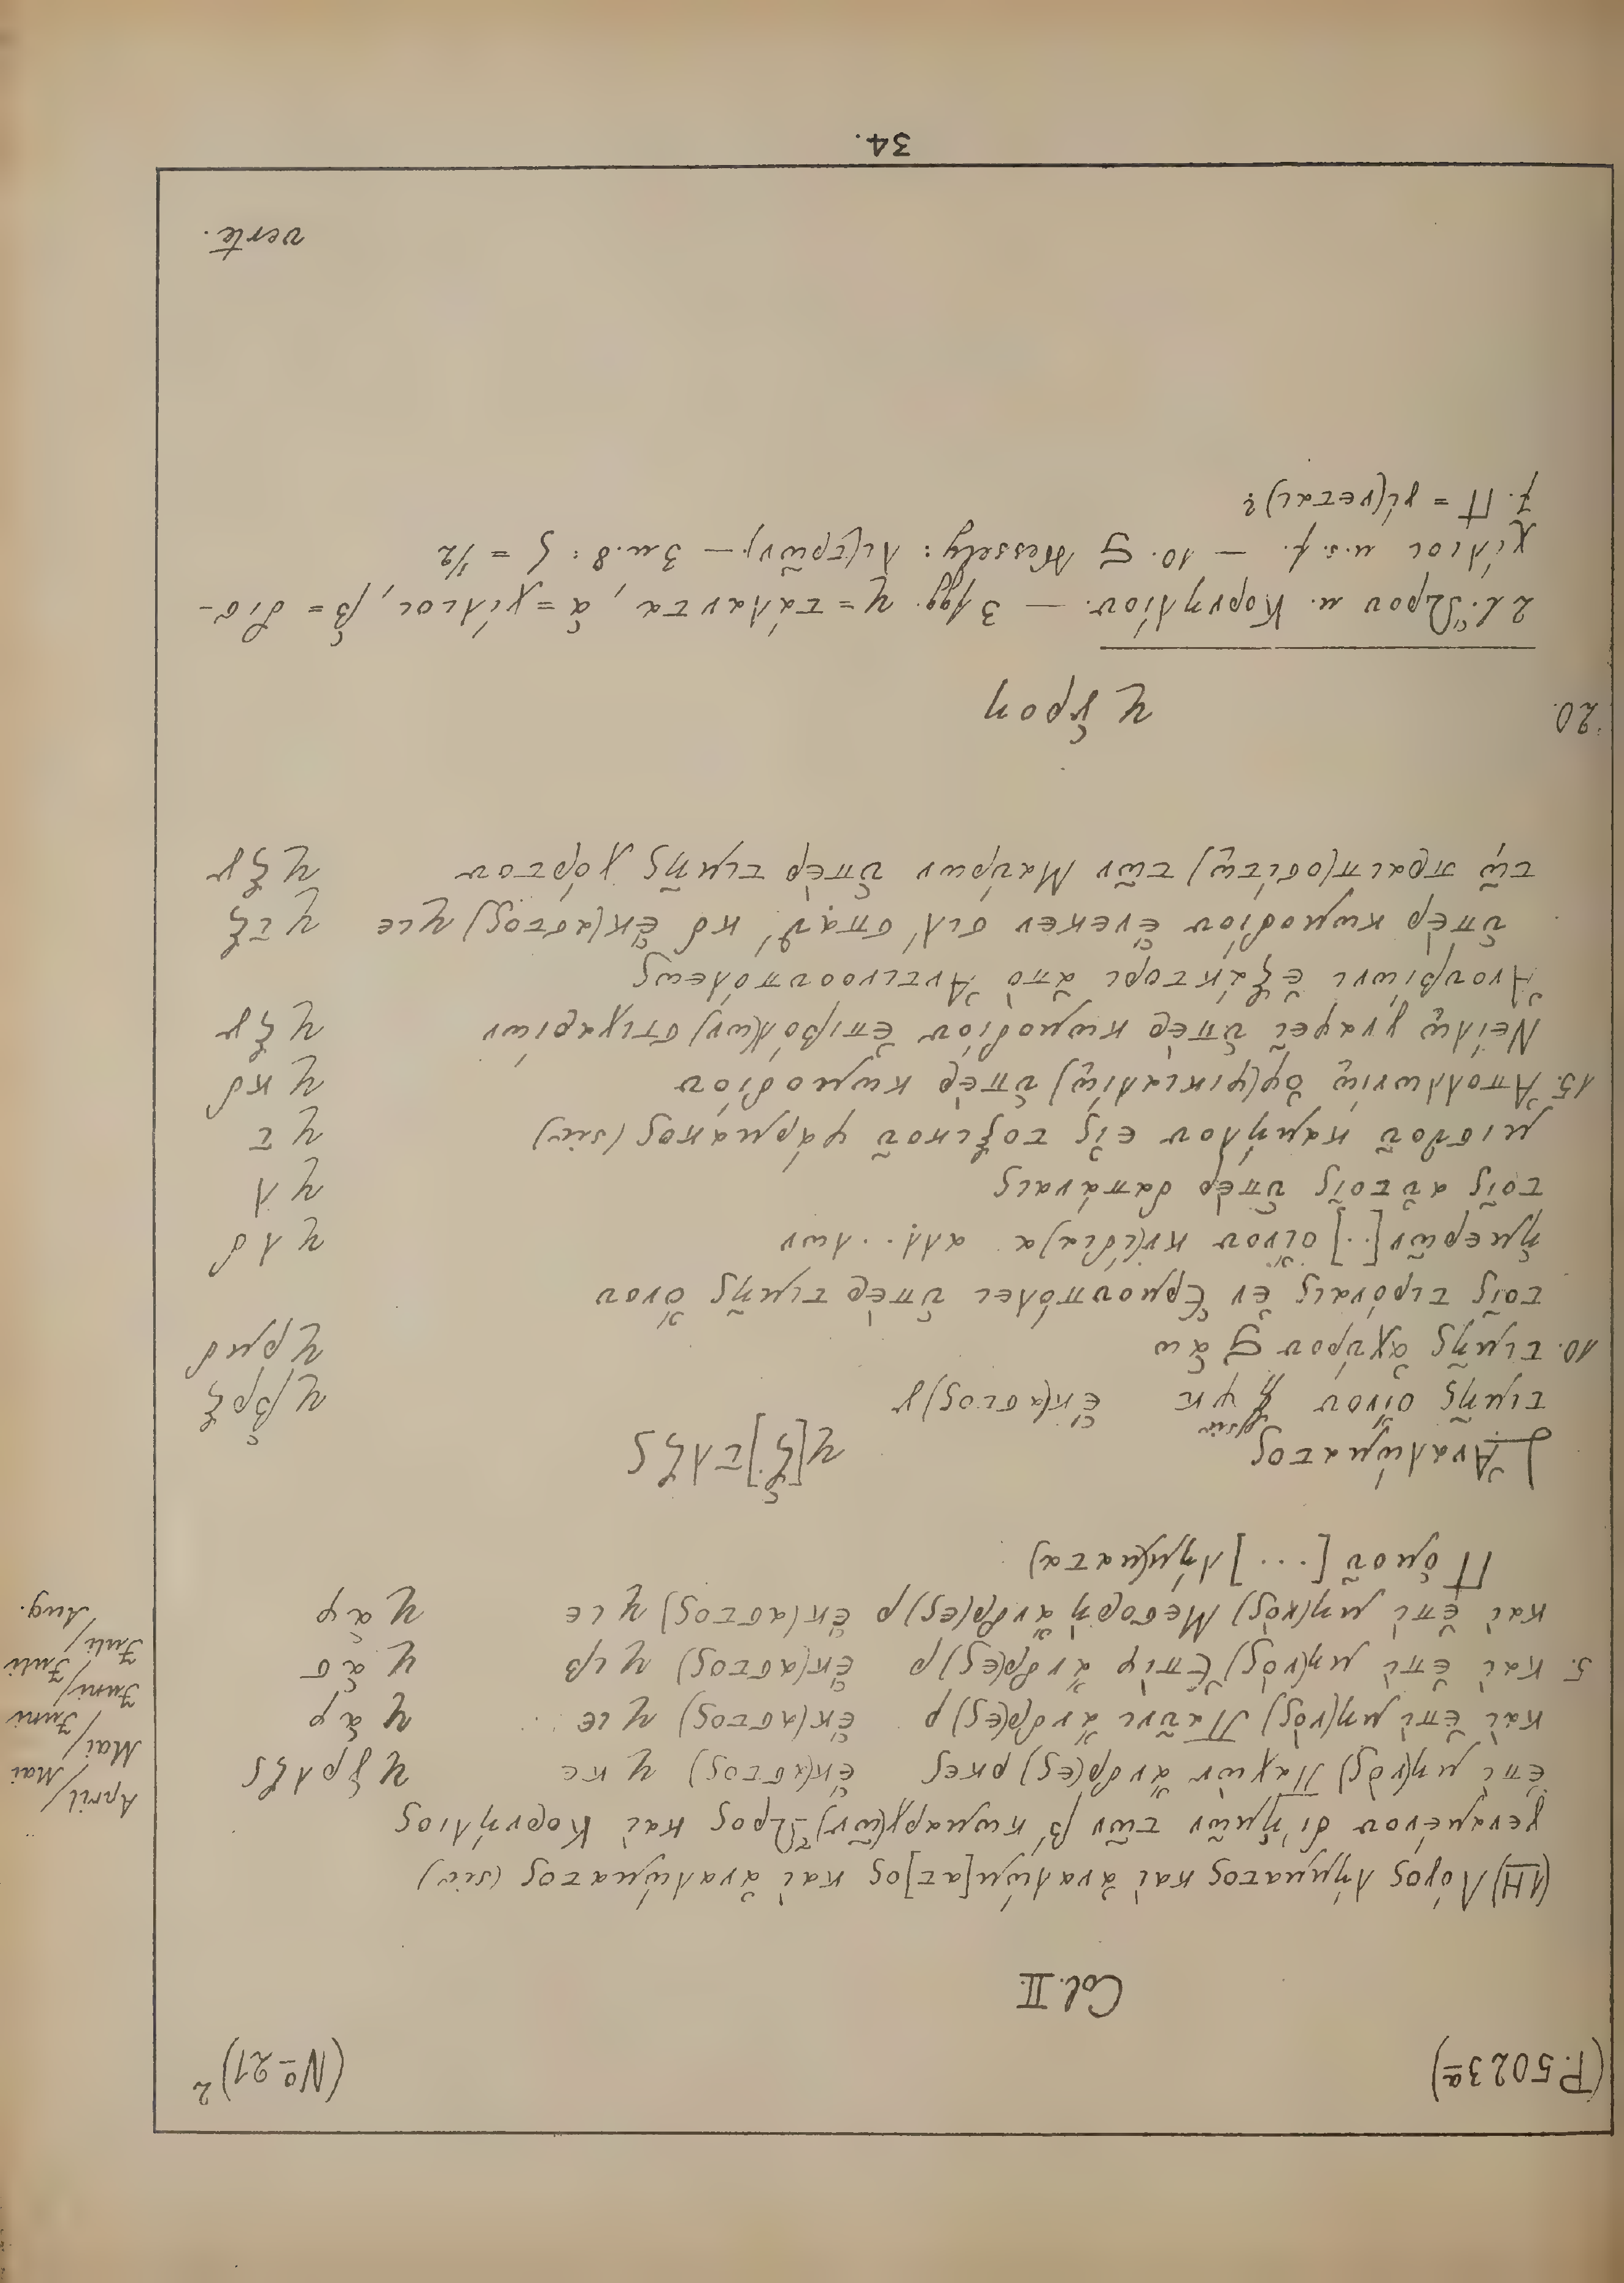 (P. 5023ª) (Nº 21)²
Col. II.
(1H) Λόγος λήμματος καὶ ἀναλώμ[ατ]ος καὶ ἀναλώματος (sic)
γεναμένου δι' ἡμῶν τῶν β' κωμαρχ(ῶν) Ὥρος καὶ Κορνήλιος
ἐπὶ μη(νὸς) Παχὼν ἄνδρ(ες) ρκες ἕκ(αστος) κε γρλζς April/Mai
καὶ ἐπὶ μη(νὸς) Παῦνι ἄνδρ(ες) ρ ἕκ(αστος) ιε αφ Mai/Juni
5. καὶ ἐπὶ μη(νὸς) Ἐπὶφ ἄνδρ(ες) ρ ἕκ(αστος) ιβ ασ Juni/Juli
καὶ ἐπὶ μη(νὸς) Μεσορὴ ἄνδρ(ες) ρ ἕκ(αστος) ιε αφ Juli/Aug.
Π ὁμοῦ [...] λήμ(ματα)
Ἀναλώματος [ζ]τλζς
τιμῆς οἴνου ψκ ἕκ(αστος) γ βρξ
10. τιμῆς ἀχύρου αω ρμδ
τοῖς τιρόναις ἐν Ἑρμουπόλει ὑπὲρ τιμῆς ὄνου
ἡμερῶν [..] οἴνου κν(ίδια) α αλλ...λων λδ
τοῖς αὐτοῖς ὑπὲρ δαπάναις λ
μισθοῦ καμήλου εἰς τοξικοῦ φάρμακος (sic) τ
15. Ἀπολλωνίῳ ὀφ(φικιαλίῳ) ὑπὲρ κωμοδίου κδ
Νείλῳ γναφεῖ ὑπὲρ κωμοδίου ἐπιβόλ(ων) στιχαρίων ξγ
Ἀνουβίωνι ἐξάκτορι ἀπὸ Ἀντινοουπόλεως
ὑπὲρ κωμοδίου ἕνεκεν σιλ' σπαθ' κδ ἕκ(αστος) ιε τξ
τῷ πραιπ(οσίτῳ) τῶν Μαύρων ὑπὲρ τιμῆς χόρτου ξγ
20. γροη
2 l. Ὥρου u. Κορνηλίου. — 3 ffgg. = τάλαντα, α = χίλιοι, β = δισ-
χίλιοι u.s.f. — 10. Wessely: λι(τρῶν). — 3 u. 8: ς = ½
7. Π = γί(νεται)?
verte.
34.